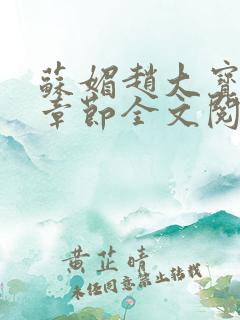 蘇媚趙大寶
章節全文閱
黃芷晴
未经同意禁止转载